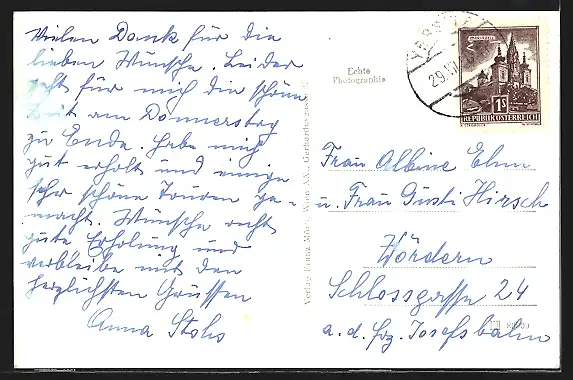 Vielen Dank für die
lieben Wünsche. Leider
geht für mich die schöne
Zeit am Donnerstag
zu Ende. Habe mich
gut erholt und einige
sehr schöne Touren ge-
macht. Wünsche recht
gute Erholung und
verbleibe mit den
herzlichsten Grüssen
Anna
Echte
Photographie
Verlag Franz Wien XX,
29.
MARIAZELL
1S
REPUBLIK ÖSTERREICH
Frau Albine Ehm
u. Frau Gusti Hirsch
Wördern
Schlossgasse 24
a. d. Frz. Josefsbahn